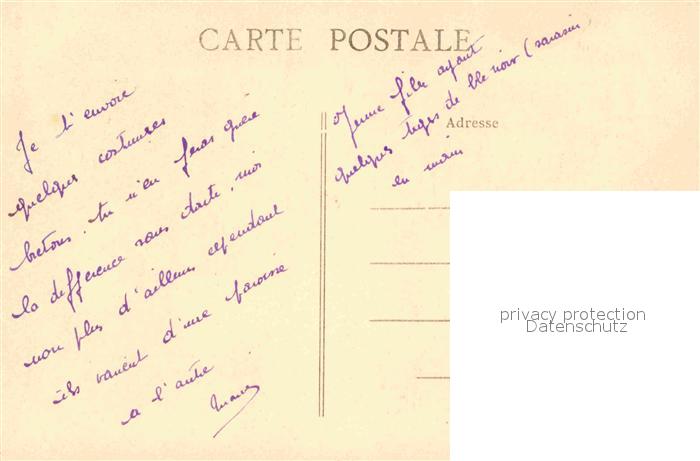 CARTE POSTALE
Je t'envoie
quelques costumes
bretons. tu n'en feras guère
la différence sans doute, moi
non plus d'ailleurs cependant
ils varient d'une paroisse
a l'autre
Jeune fille ayant
quelques tiges de blé noir (sarasin)
en main
Adresse
privacy protection
Datenschutz